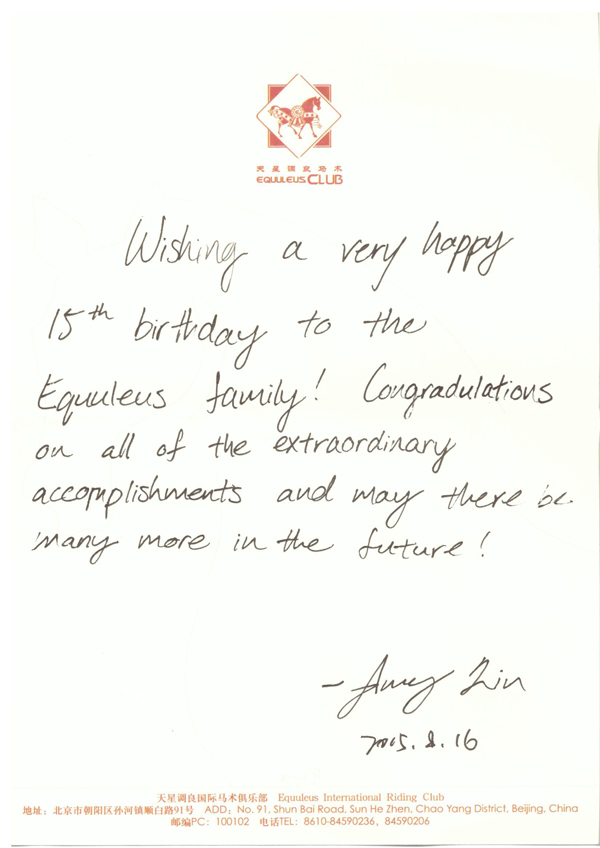 天星调良马术
EQUULEUS CLUB
Wishing a very happy
15th birthday to the
Equuleus family! Congradulations
on all of the extraordinary
accomplishments and may there be
many more in the future!
- Amy Lin
2015.8.16
天星调良国际马术俱乐部 Equuleus International Riding Club
地址：北京市朝阳区孙河镇顺白路91号 ADD：No. 91, Shun Bai Road, Sun He Zhen, Chao Yang District, Beijing, China
邮编PC：100102 电话TEL：8610-84590236、84590206